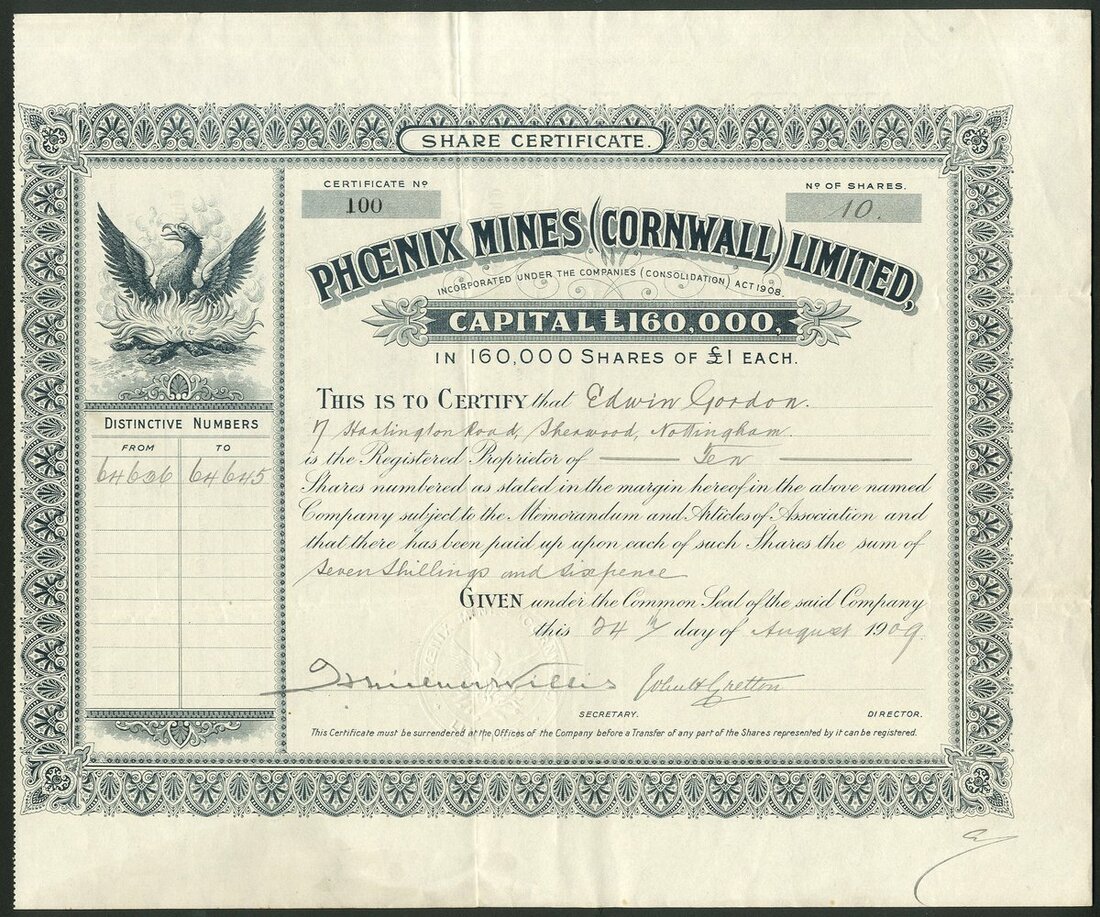 SHARE CERTIFICATE.
CERTIFICATE Nº
100
Nº OF SHARES.
10.
PHŒNIX MINES (CORNWALL) LIMITED,
INCORPORATED UNDER THE COMPANIES (CONSOLIDATION) ACT 1908.
CAPITAL £160,000,
IN 160,000 SHARES OF £1 EACH.
THIS IS TO CERTIFY that Edwin Gordon.
7 Hartington Road, Sherwood, Nottingham.
is the Registered Proprietor of Ten
Shares numbered as stated in the margin hereof in the above named
Company subject to the Memorandum and Articles of Association and
that there has been paid up upon each of such Shares the sum of
Seven Shillings and Sixpence
GIVEN under the Common Seal of the said Company
this 24th day of August 1909
DISTINCTIVE NUMBERS
FROM TO
64636 64645
Willis John H Gretton
SECRETARY. DIRECTOR.
This Certificate must be surrendered at the Offices of the Company before a Transfer of any part of the Shares represented by it can be registered.